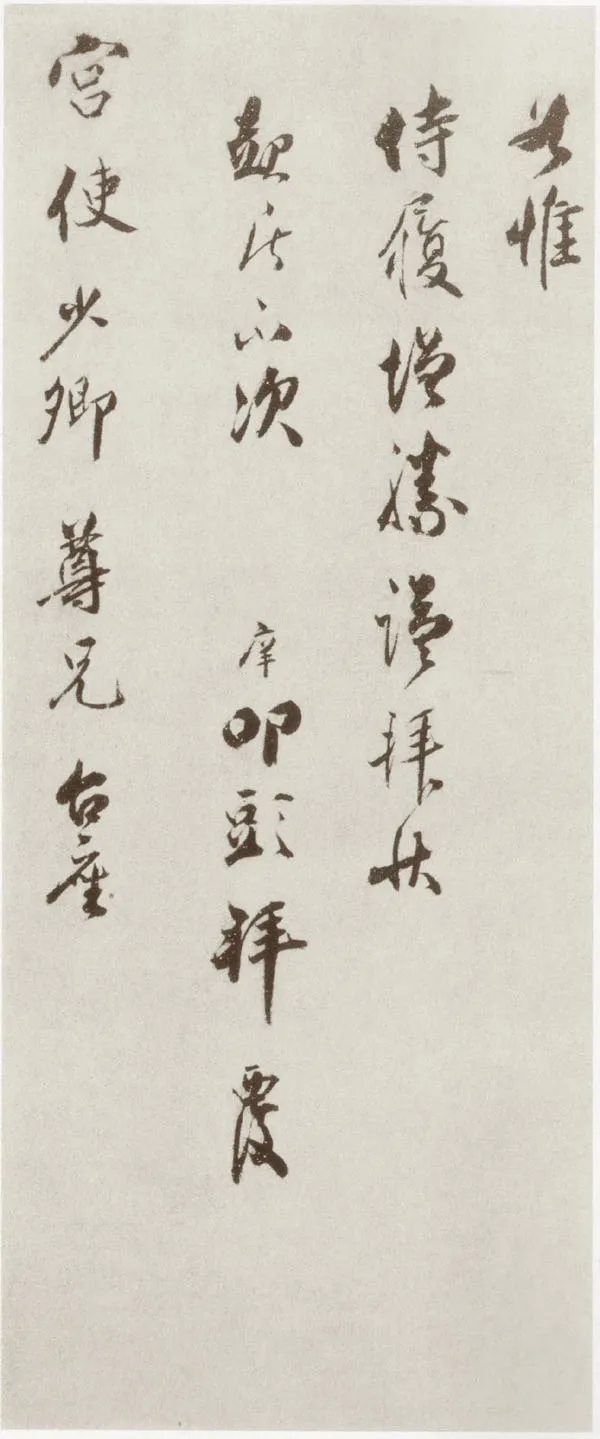 惟
侍履增勝謹拜狀
起居不次 庠叩頭拜覆
宮使少卿尊兄台座